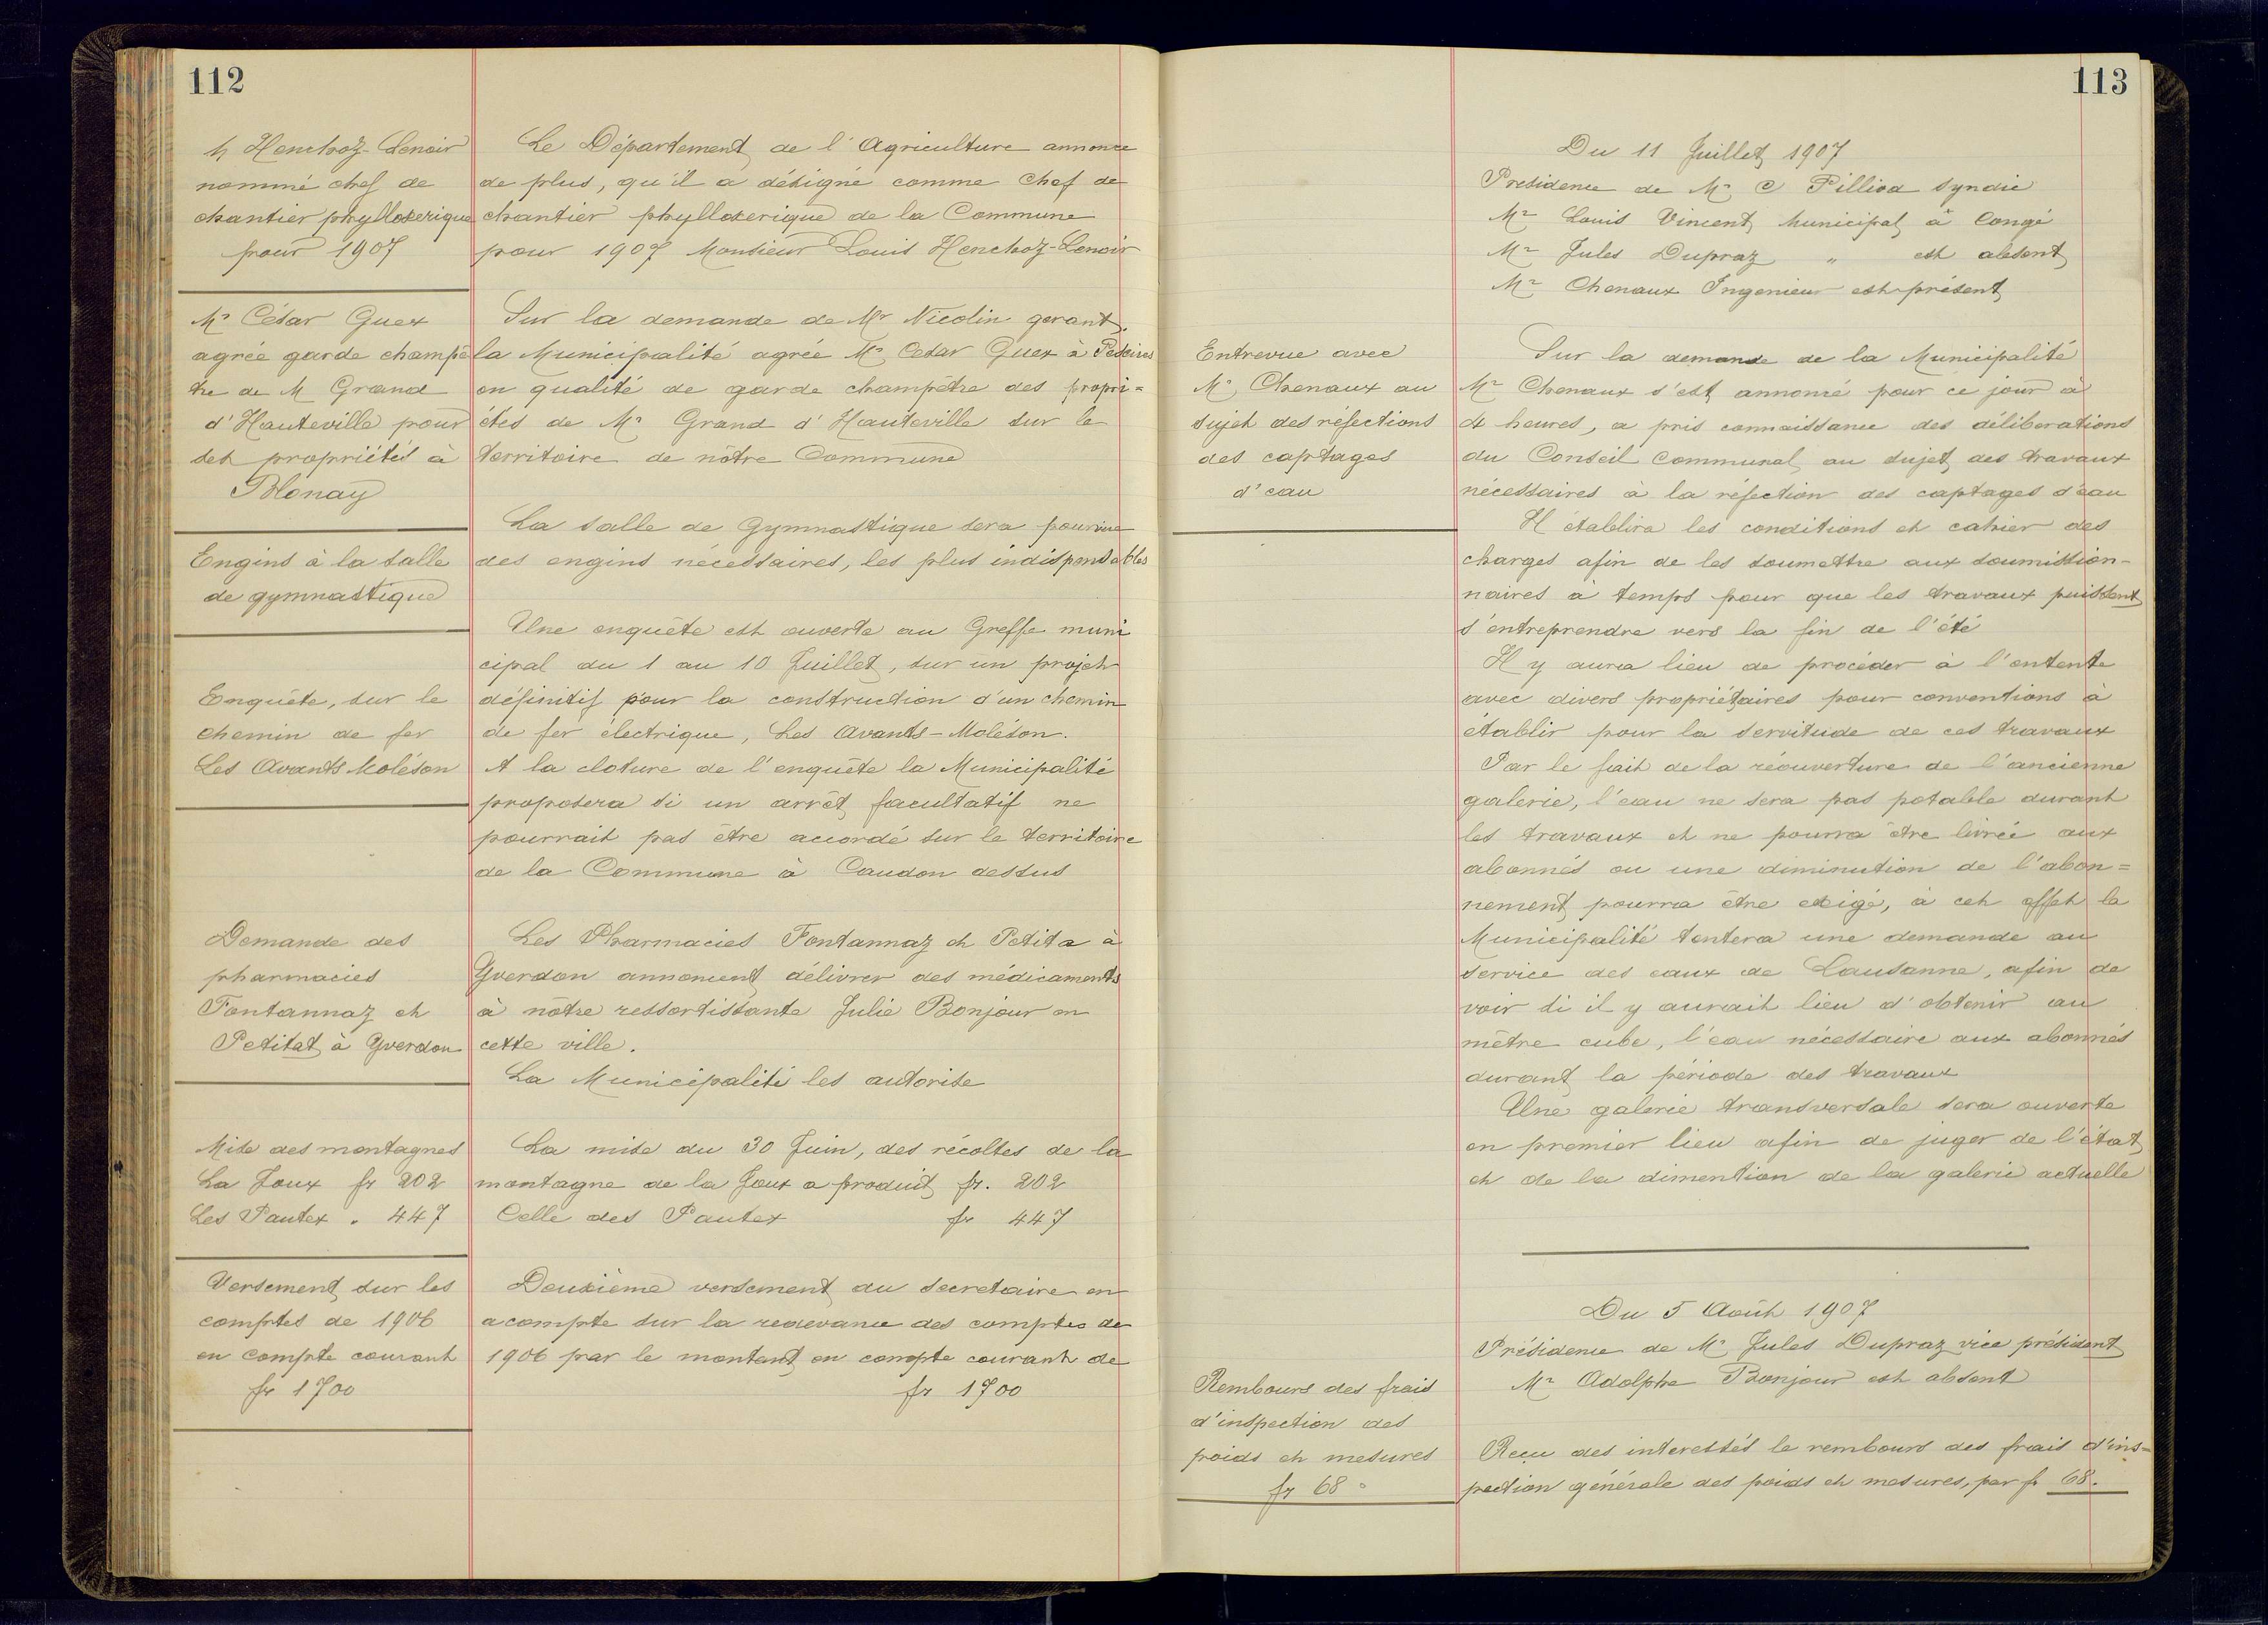 112
h Henchoz-Lenoir
nommé chef de
chantier phylloxerique
pour 1907
Le Département de l'Agriculture annonce
de plus, qu'il a désigné comme Chef de
chantier phylloxerique de la Commune
pour 1907 Monsieur Louis Henchoz-Lenoir
Mr César Guex
agrée garde champê
tre de M Grand
d'Hauteville pour
ses propriétés à
Blonay
Sur la demande de Mr Nicolin gerant,
la Municipalité agrée Mr Cesar Guex à
en qualité de garde champêtre des propri=
étés de Mr Grand d'Hauteville sur le
territoire de nôtre Commune
Engins à la salle
de gymnastique
La salle de Gymnastique sera pourvue
des engins nécessaires, les plus indispensables
Enquête, sur le
chemin de fer
Les Avants Moléson
Une enquête est ouverte au Greffe muni
cipal du 1 au 10 Juillet, sur un projet
définitif pour la construction d'un chemin
de fer électrique, Les Avants-Moléson.
A la cloture de l'enquête la Municipalité
proposera si un arrêt facultatif ne
pourrait pas être accordé sur le territoire
de la Commune à Caudon dessus
Demande des
pharmacies
Fontannaz et
Petitat à Yverdon
Les Pharmacies Fontannaz et Petita à
Yverdon annoncent délivrer des médicaments
à nôtre ressortissante Julie Bonjour en
cette ville.
La Municipalité les autorise
Mise des montagnes
La Joux fr 202
Les Pautex " 447
La mise du 30 Juin, des récoltes de la
montagne de la Joux a produit fr. 202
Celle des Pautex fr 447
Versement sur les
comptes de 1906
en compte courant
fr 1700
Deuxième versement du secretaire en
acompte sur la redevance des comptes de
1906 par le montant en compte courant de
fr 1700
113
Du 11 Juillet 1907
Presidence de Mr C Pilliod Syndic
Mr Louis Vincent Municipal à Congé
Mr Jules Dupraz " est absent
Mr Chenaux Ingenieur est présent
Entrevue avec
Mr Chenaux au
sujet des réfections
des captages
d'eau
Sur la demande de la Municipalité
Mr Chenaux s'est annoncé pour ce jour à
4 heures, a pris connaissance des déliberations
du Conseil Communal au sujet des travaux
nécessaires à la réfection des captages d'eau
Il établira les conditions et cahier des
charges afin de les soumettre aux soumission-
naires à temps pour que les travaux puissent
s'entreprendre vers la fin de l'été
Il y aura lieu de procéder à l'entente
avec divers propriétaires pour conventions à
établir pour la servitude de ces travaux
Par le fait de la réouverture de l'ancienne
galerie, l'eau ne sera pas potable durant
les travaux et ne pourra être livrée aux
abonnés ou une diminution de l'abon=
nement pourra être exigé, à cet effet la
Municipalité tentera une demande au
service des eaux de Lausanne, afin de
voir si il y aurait lieu d'obtenir au
mètre cube, l'eau nécessaire aux abonnés
durant la période des travaux
Une galerie transversale sera ouverte
en premier lieu afin de juger de l'état
et de la dimention de la galerie actuelle
Du 5 Août 1907
Présidence de Mr Jules Dupraz vice président
Mr Adolphe Bonjour est absent
Rembours des frais
d'inspection des
poids et mesures
fr 68 "
Reçu des interessés le rembours des frais d'ins=
pection générale des poids et mesures, par fr 68.